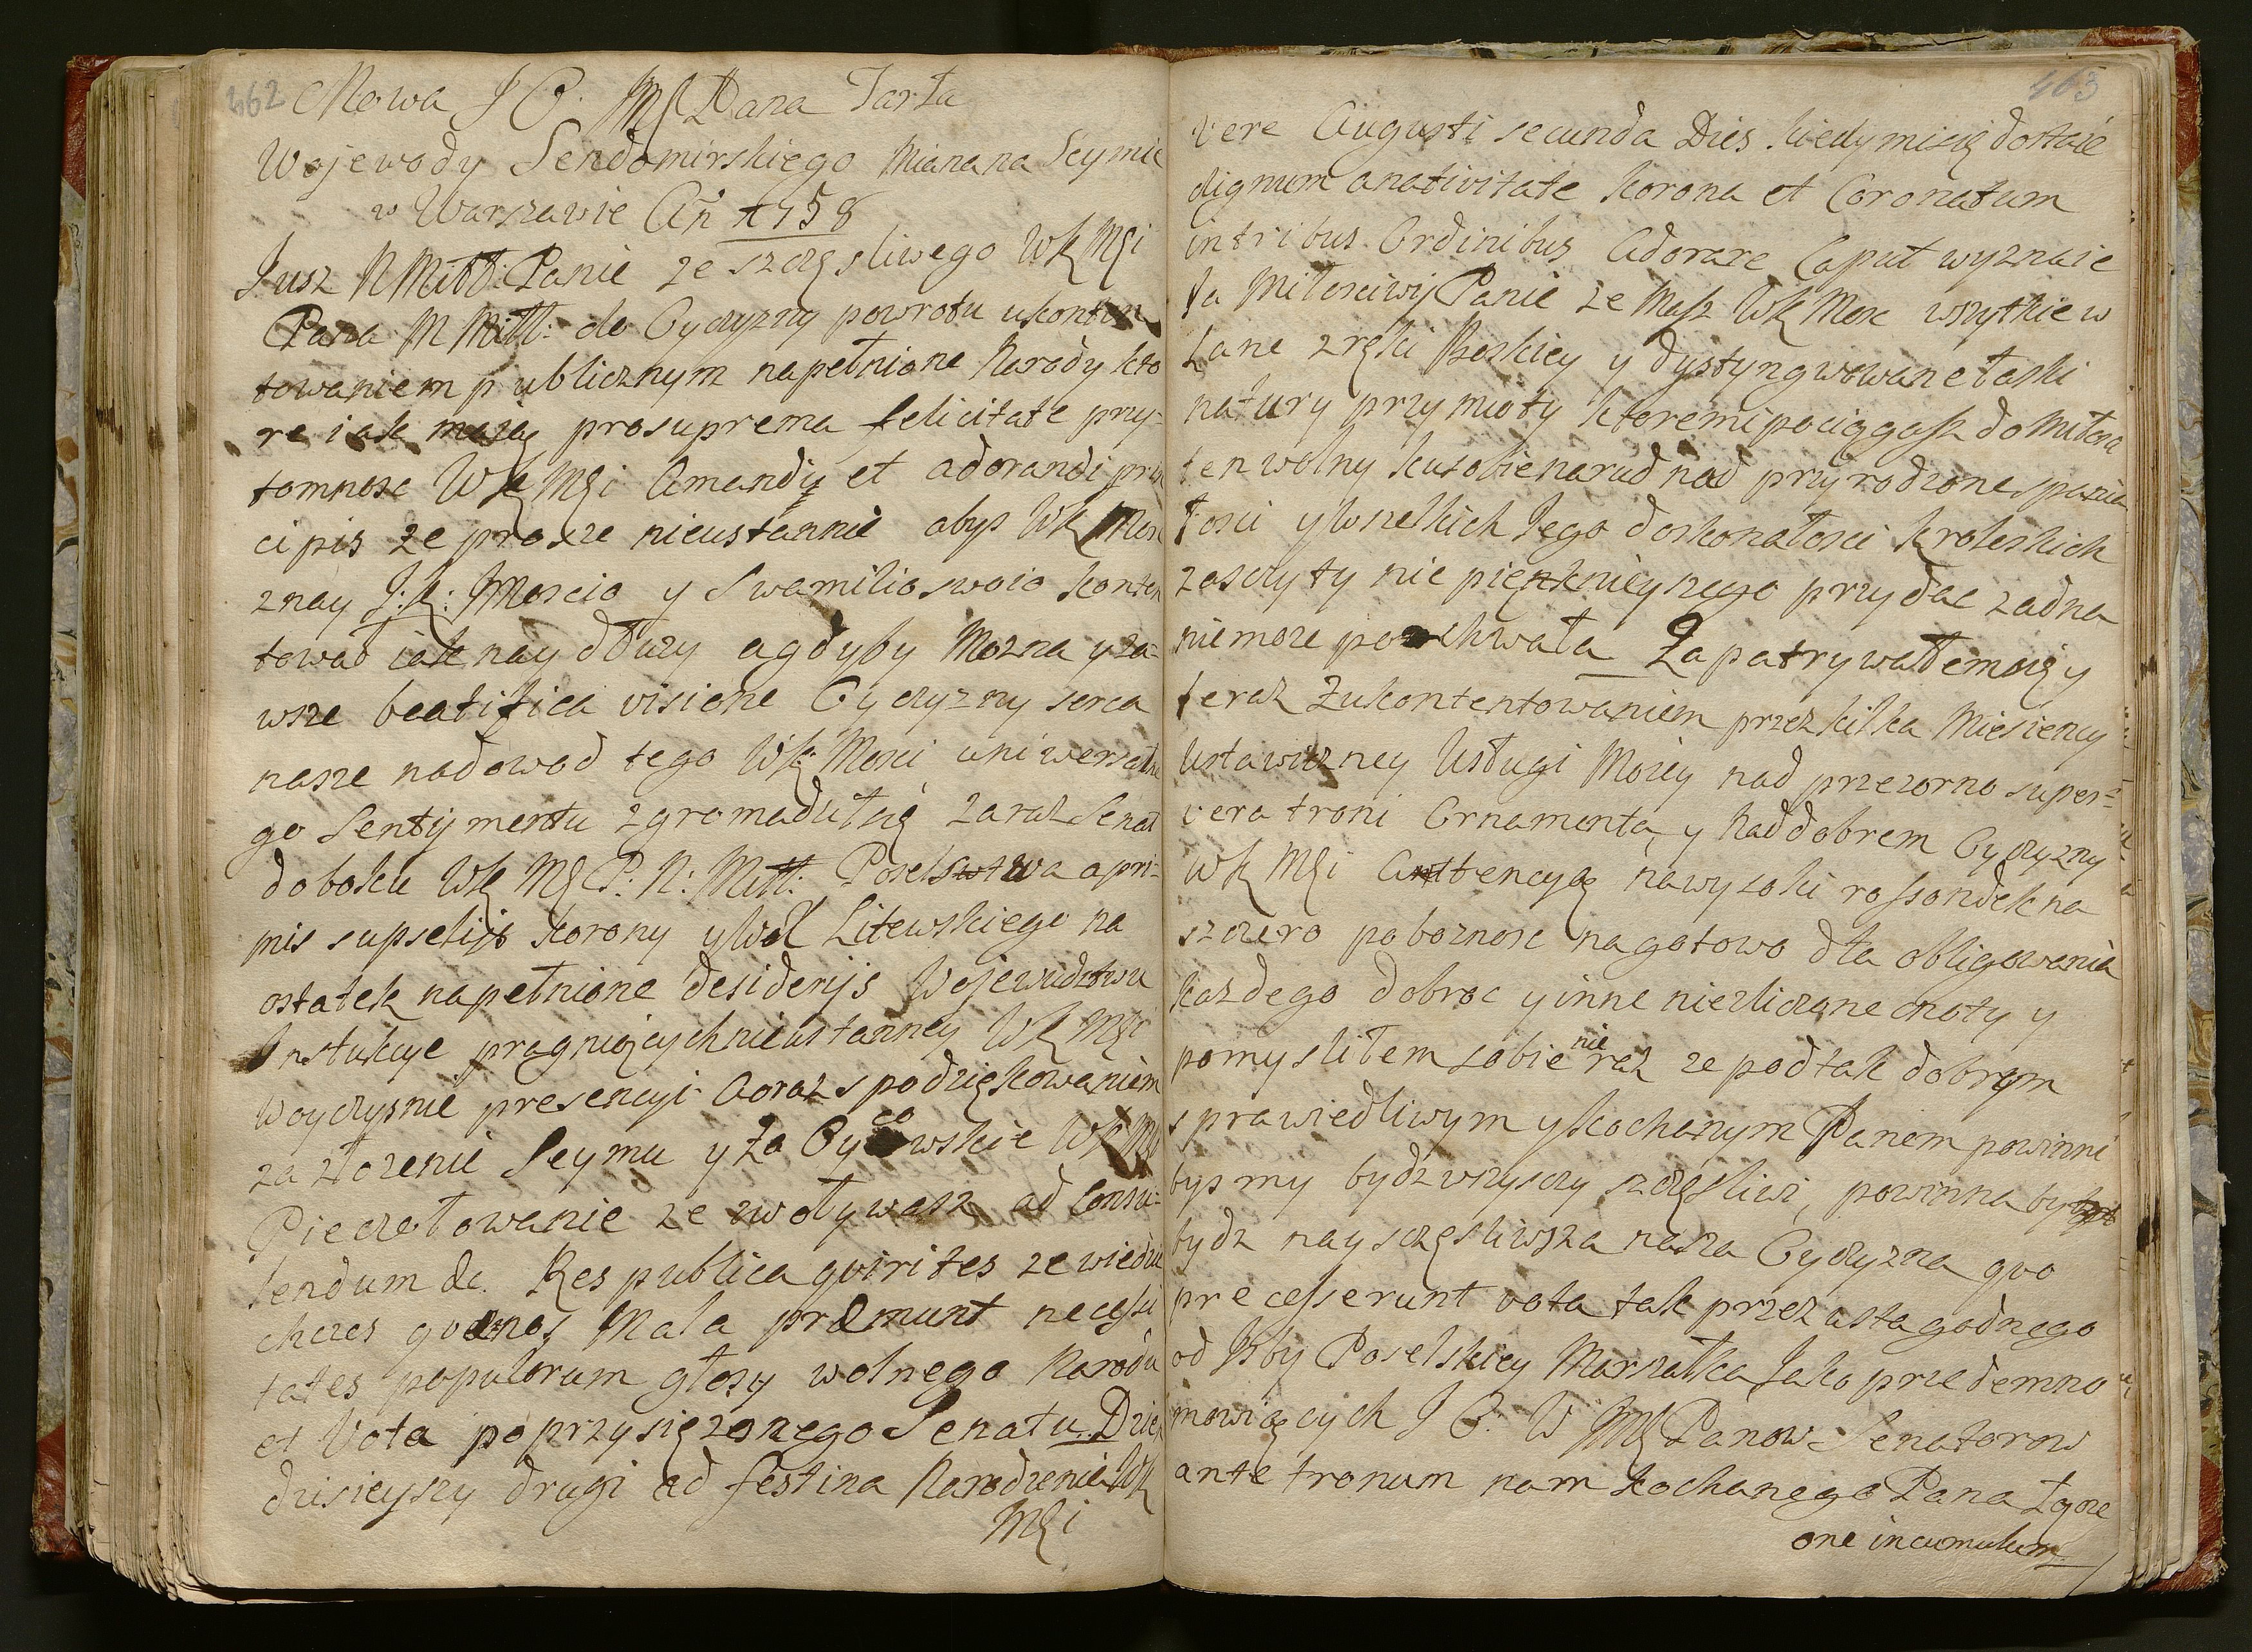 462 Mowa J O. JMę Pana Tarła
Wojewody Sendomirskiego Miana na Seymie
w Warszawie Añ 1758
Jusz N Miłł: Panie ze szczęsliwego WK Mςi
Pana M Miłł: do Oyczyzny powrotu ukonten
towaniem publicznym napełnione Narody kto
re iak maią pro suprema felicitate przy-
tomnosc WK Mςi Amandi et adorandi prin
cipis ze prosze nieustannie abys WK Mosc
znay J: K: Moscio y S Familio swoio konten
tował iak naydłuzy a gdyby Mozna y za-
wsze beatifica visione Oyczyzny serca
nasze na dowod tego WK Mosci uniwersalne
go Sentymentu zgromadził się zaraz Senat
do boku WK Mς P: N: Miłł: Poselstwa a pri-
mis supselijs Korony y Wo X Litewskiego na
ostatek napełnione desiderijs Wojewudztwu
Instukcye pragniących nieustanney WK Mςi
W oyczysnie presencyi a oraz s podziękowaniem
za złozenie Seymu y za Oycowskie WK Mςi
Pieczołowanie ze zwoływasz ad Consu-
lendum &c. Res publica qvirites ze wiedzie
chcesz qvae nos Mala praemunt necessi
tates populorum głosy wolnego Narodu
et Vota poprzysięzonego Senatu. Dzień
dzisieyszy drugi ad festina Narodzenia WK
Mςi
463
vere Augusti secunda Dies. kiedy mi się dostaie
dignum a nativitate Korona et Coronatum
in tribus Ordinibus Adorare Caput wyznaie
Ja Miłosciwy Panie ze Masz WK Mosc wszytkie w
lane z ręki Boskiey y dystyngwowane łaski
natury przymioty ktoremi pociągasz do Miłosci
ten wolny ku sobie narud nad przyrodzone spania
łosci y wszelkich Jego doskonałosci Kroleskich
zasczyty nic piękknieyszego przydac zadna
nie moze pochwała Zapatrywałem się y
teraz z ukontentowaniem przez kilka Miesiency
Ustawiczney Usługi Moiey nad przezorno super-
vera troni Ornamenta, y nad dobrem Oyczyzny
WK Mςi Attencyą na wysoki rossondek na
szczero poboznosc na gotowo dla obligowania
kazdego dobroc y inne niezliczone cnoty y
pomysliłem sobie nie raz ze pod tak dobrym
sprawiedliwym y kochanym Panem powinni
bysmy bydz wszysczy szczęsliwi, powinna by
bydz naysczęsliwsza nasza Oyczyzna qvo
precesserunt vota tak przez asta godnego
od Izby Poselskiey Marszałka Jako przedemno
mowiących J O. W JMς Panow Senatorow
ante tronum nam kochanego Pana Łąoze
one incumulum